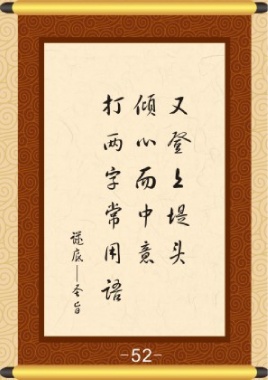 又登上堤头
倾心而中意
打两字常用语
谜底——圣旨
-52-